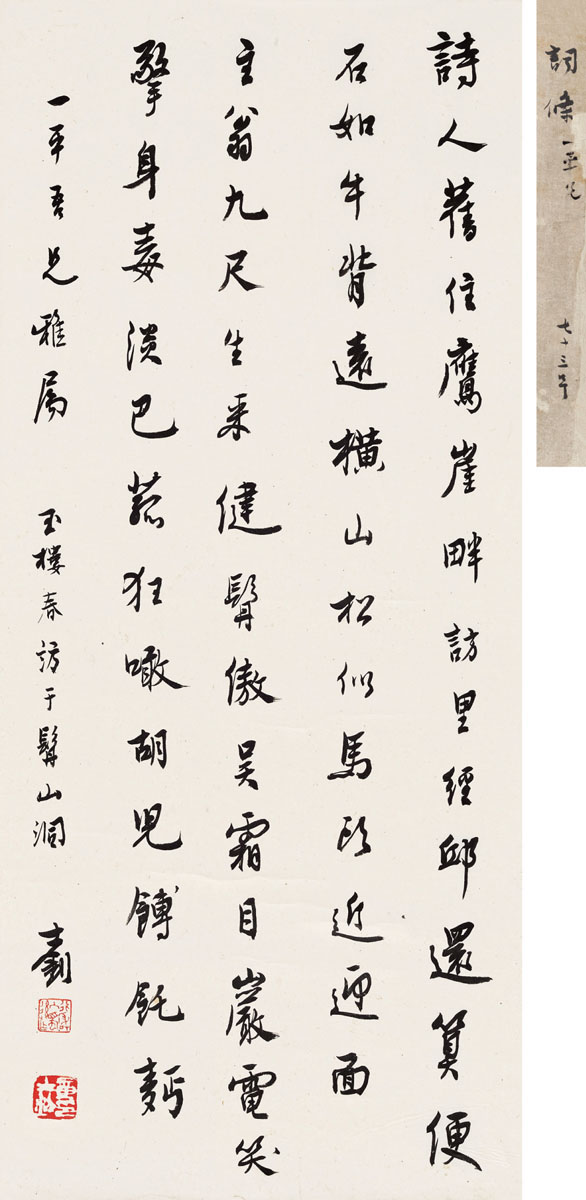 詩人舊住鷹崖畔訪里經邱還算便
石如牛背遠橫山松似馬頭近迎面
主翁九尺生來健髯傲吴霜目巖電笑
擎身毒淡巴菰狂噉胡兒餺飥麪
一平吾兄雅属 玉樓春訪于髯山洞 士釗
詞條 一平兄 七十三年